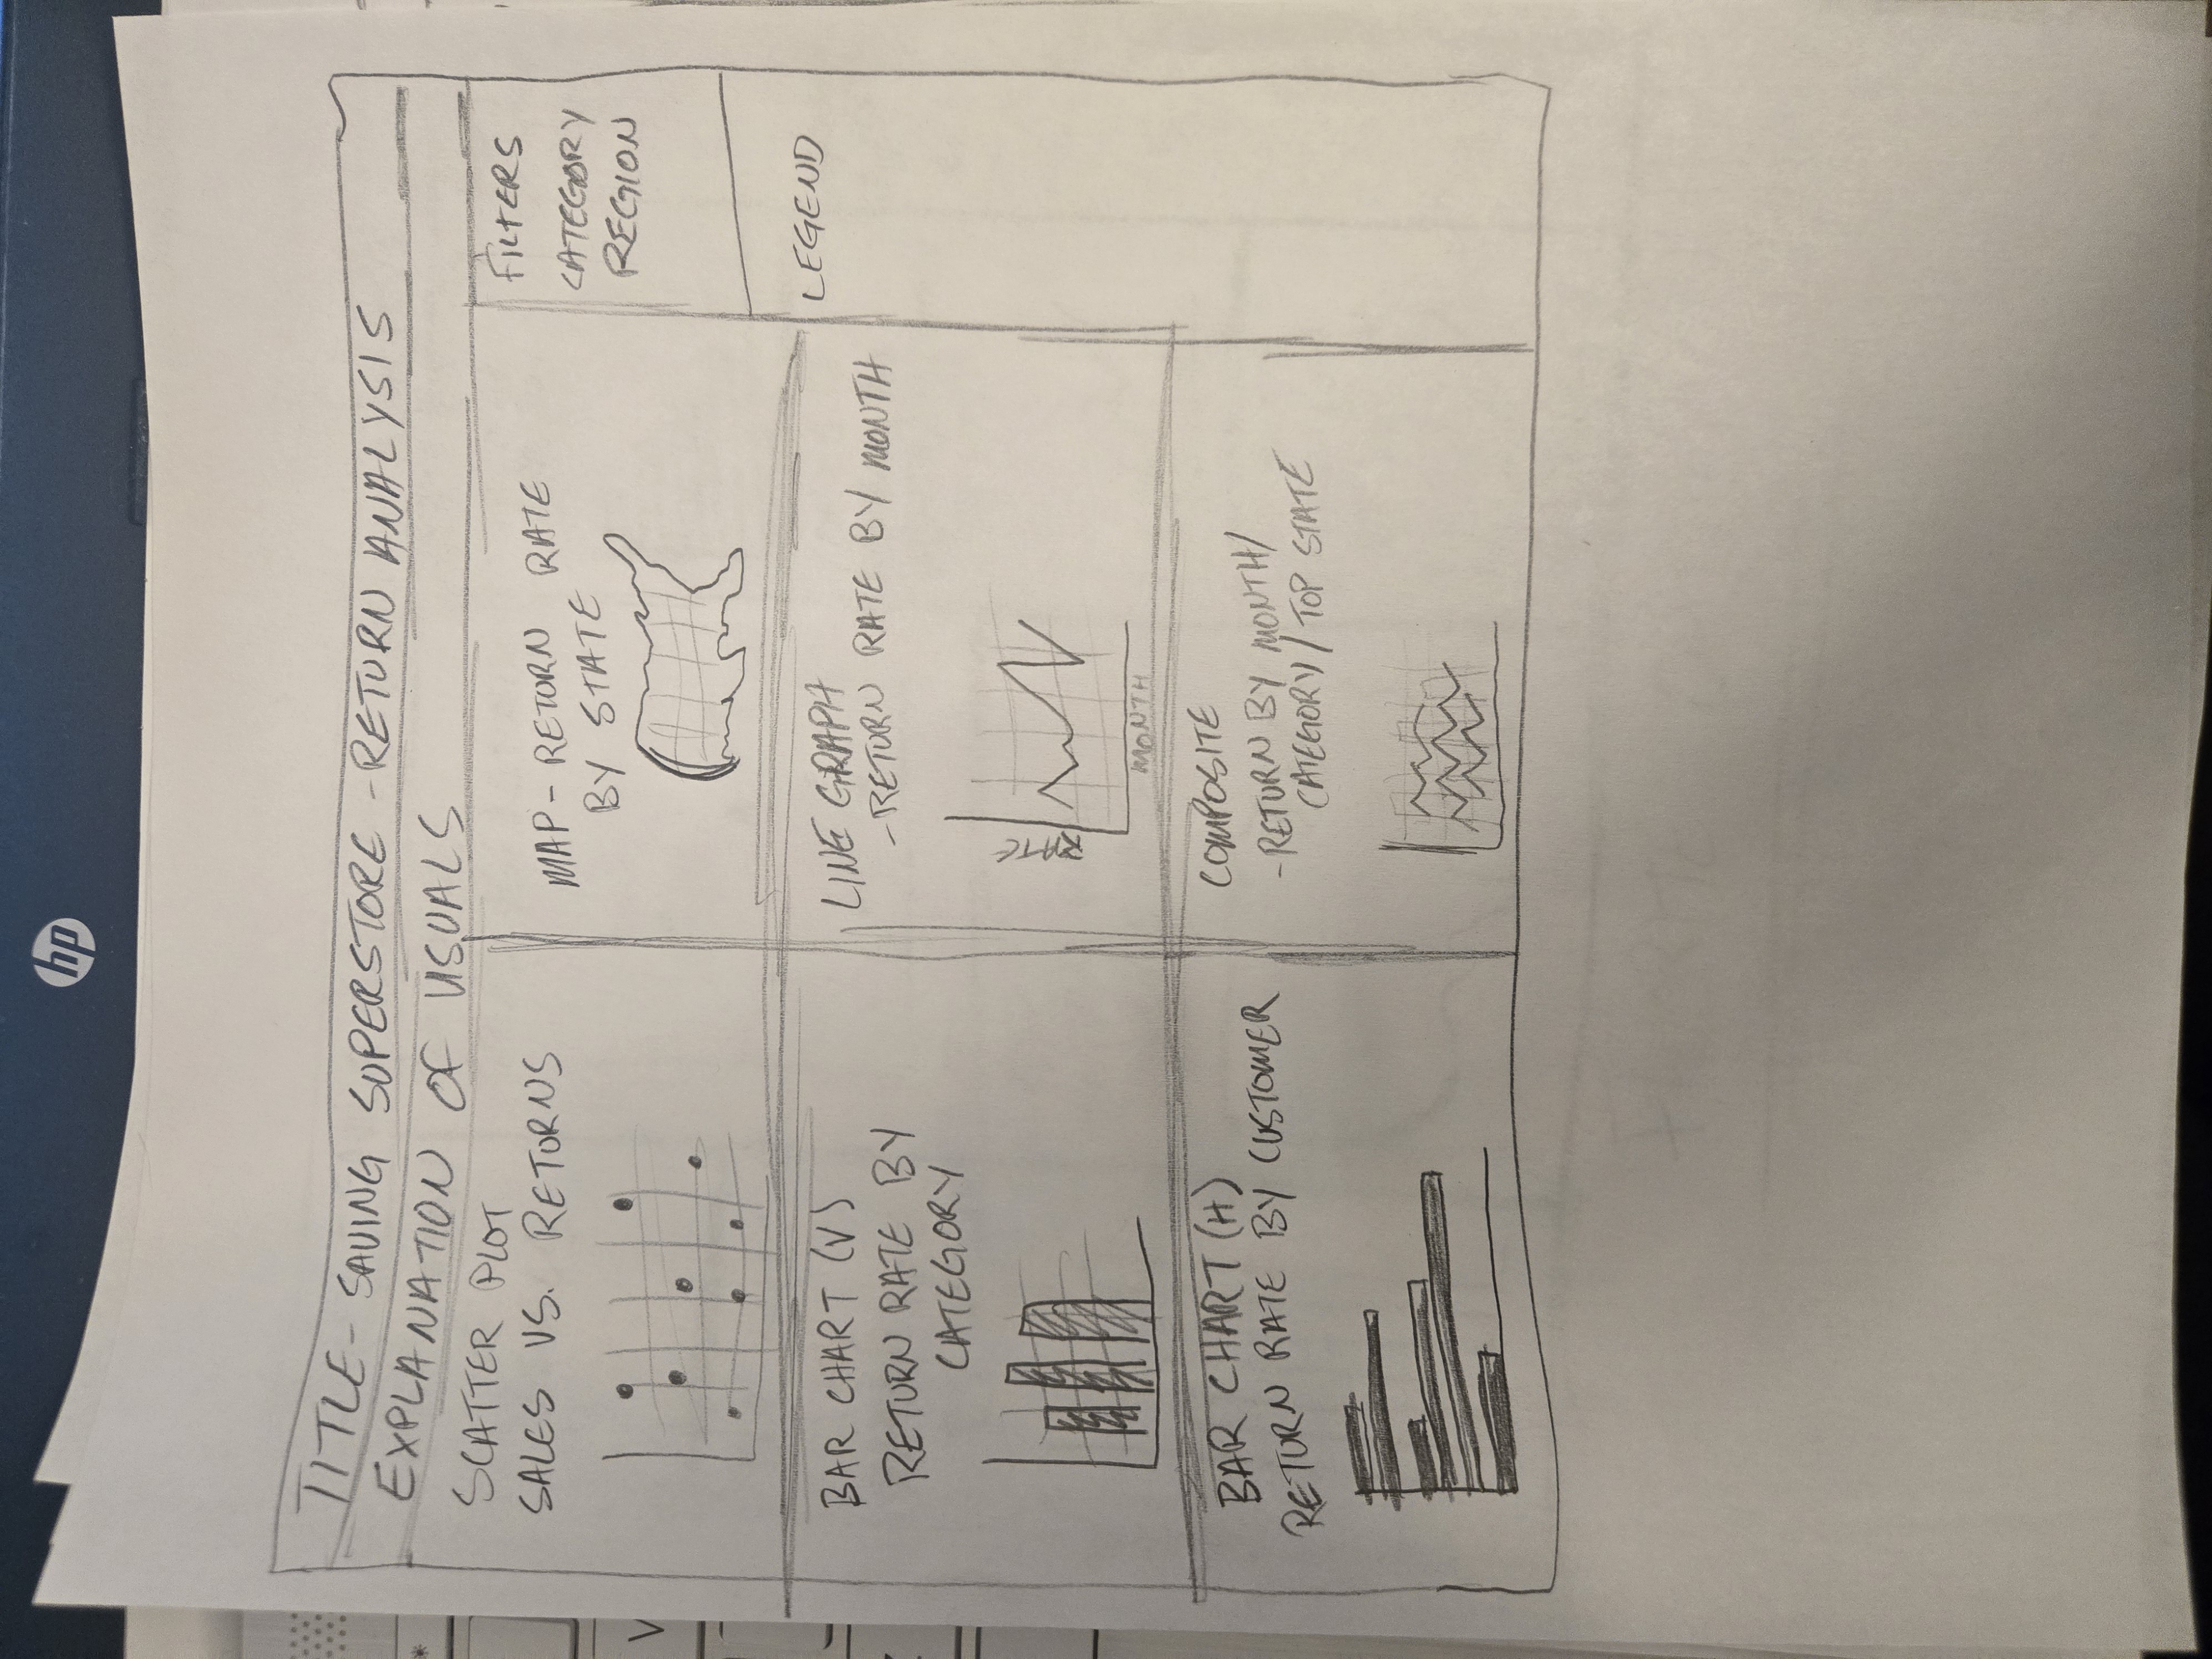 hp
TITLE - SAVING SUPERSTORE - RETURN ANALYSIS
EXPLANATION OF VISUALS
SCATTER PLOT
SALES VS. RETURNS
MAP - RETURN RATE
BY STATE
FILTERS
CATEGORY
REGION
BAR CHART (V)
RETURN RATE BY
CATEGORY
LINE GRAPH
- RETURN RATE BY MONTH
RATE
MONTH
LEGEND
BAR CHART (H)
RETURN RATE BY CUSTOMER
COMPOSITE
- RETURN BY MONTH/
CATEGORY / TOP STATE
*
V